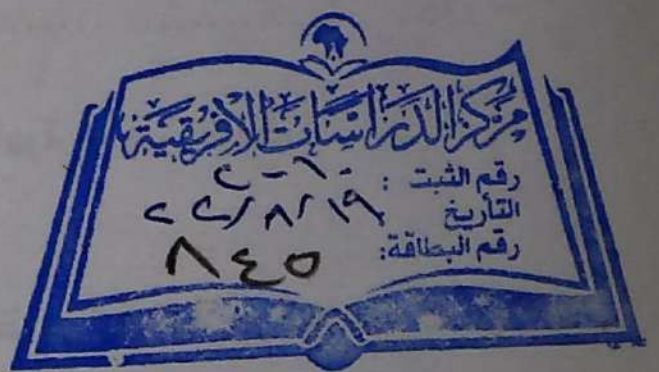 مركز الدراسات الافريقية
رقم الثبت : ٢٠٦٠
التأريخ ٢٢/٨/١٩
رقم البطاقة: ٨٤٥